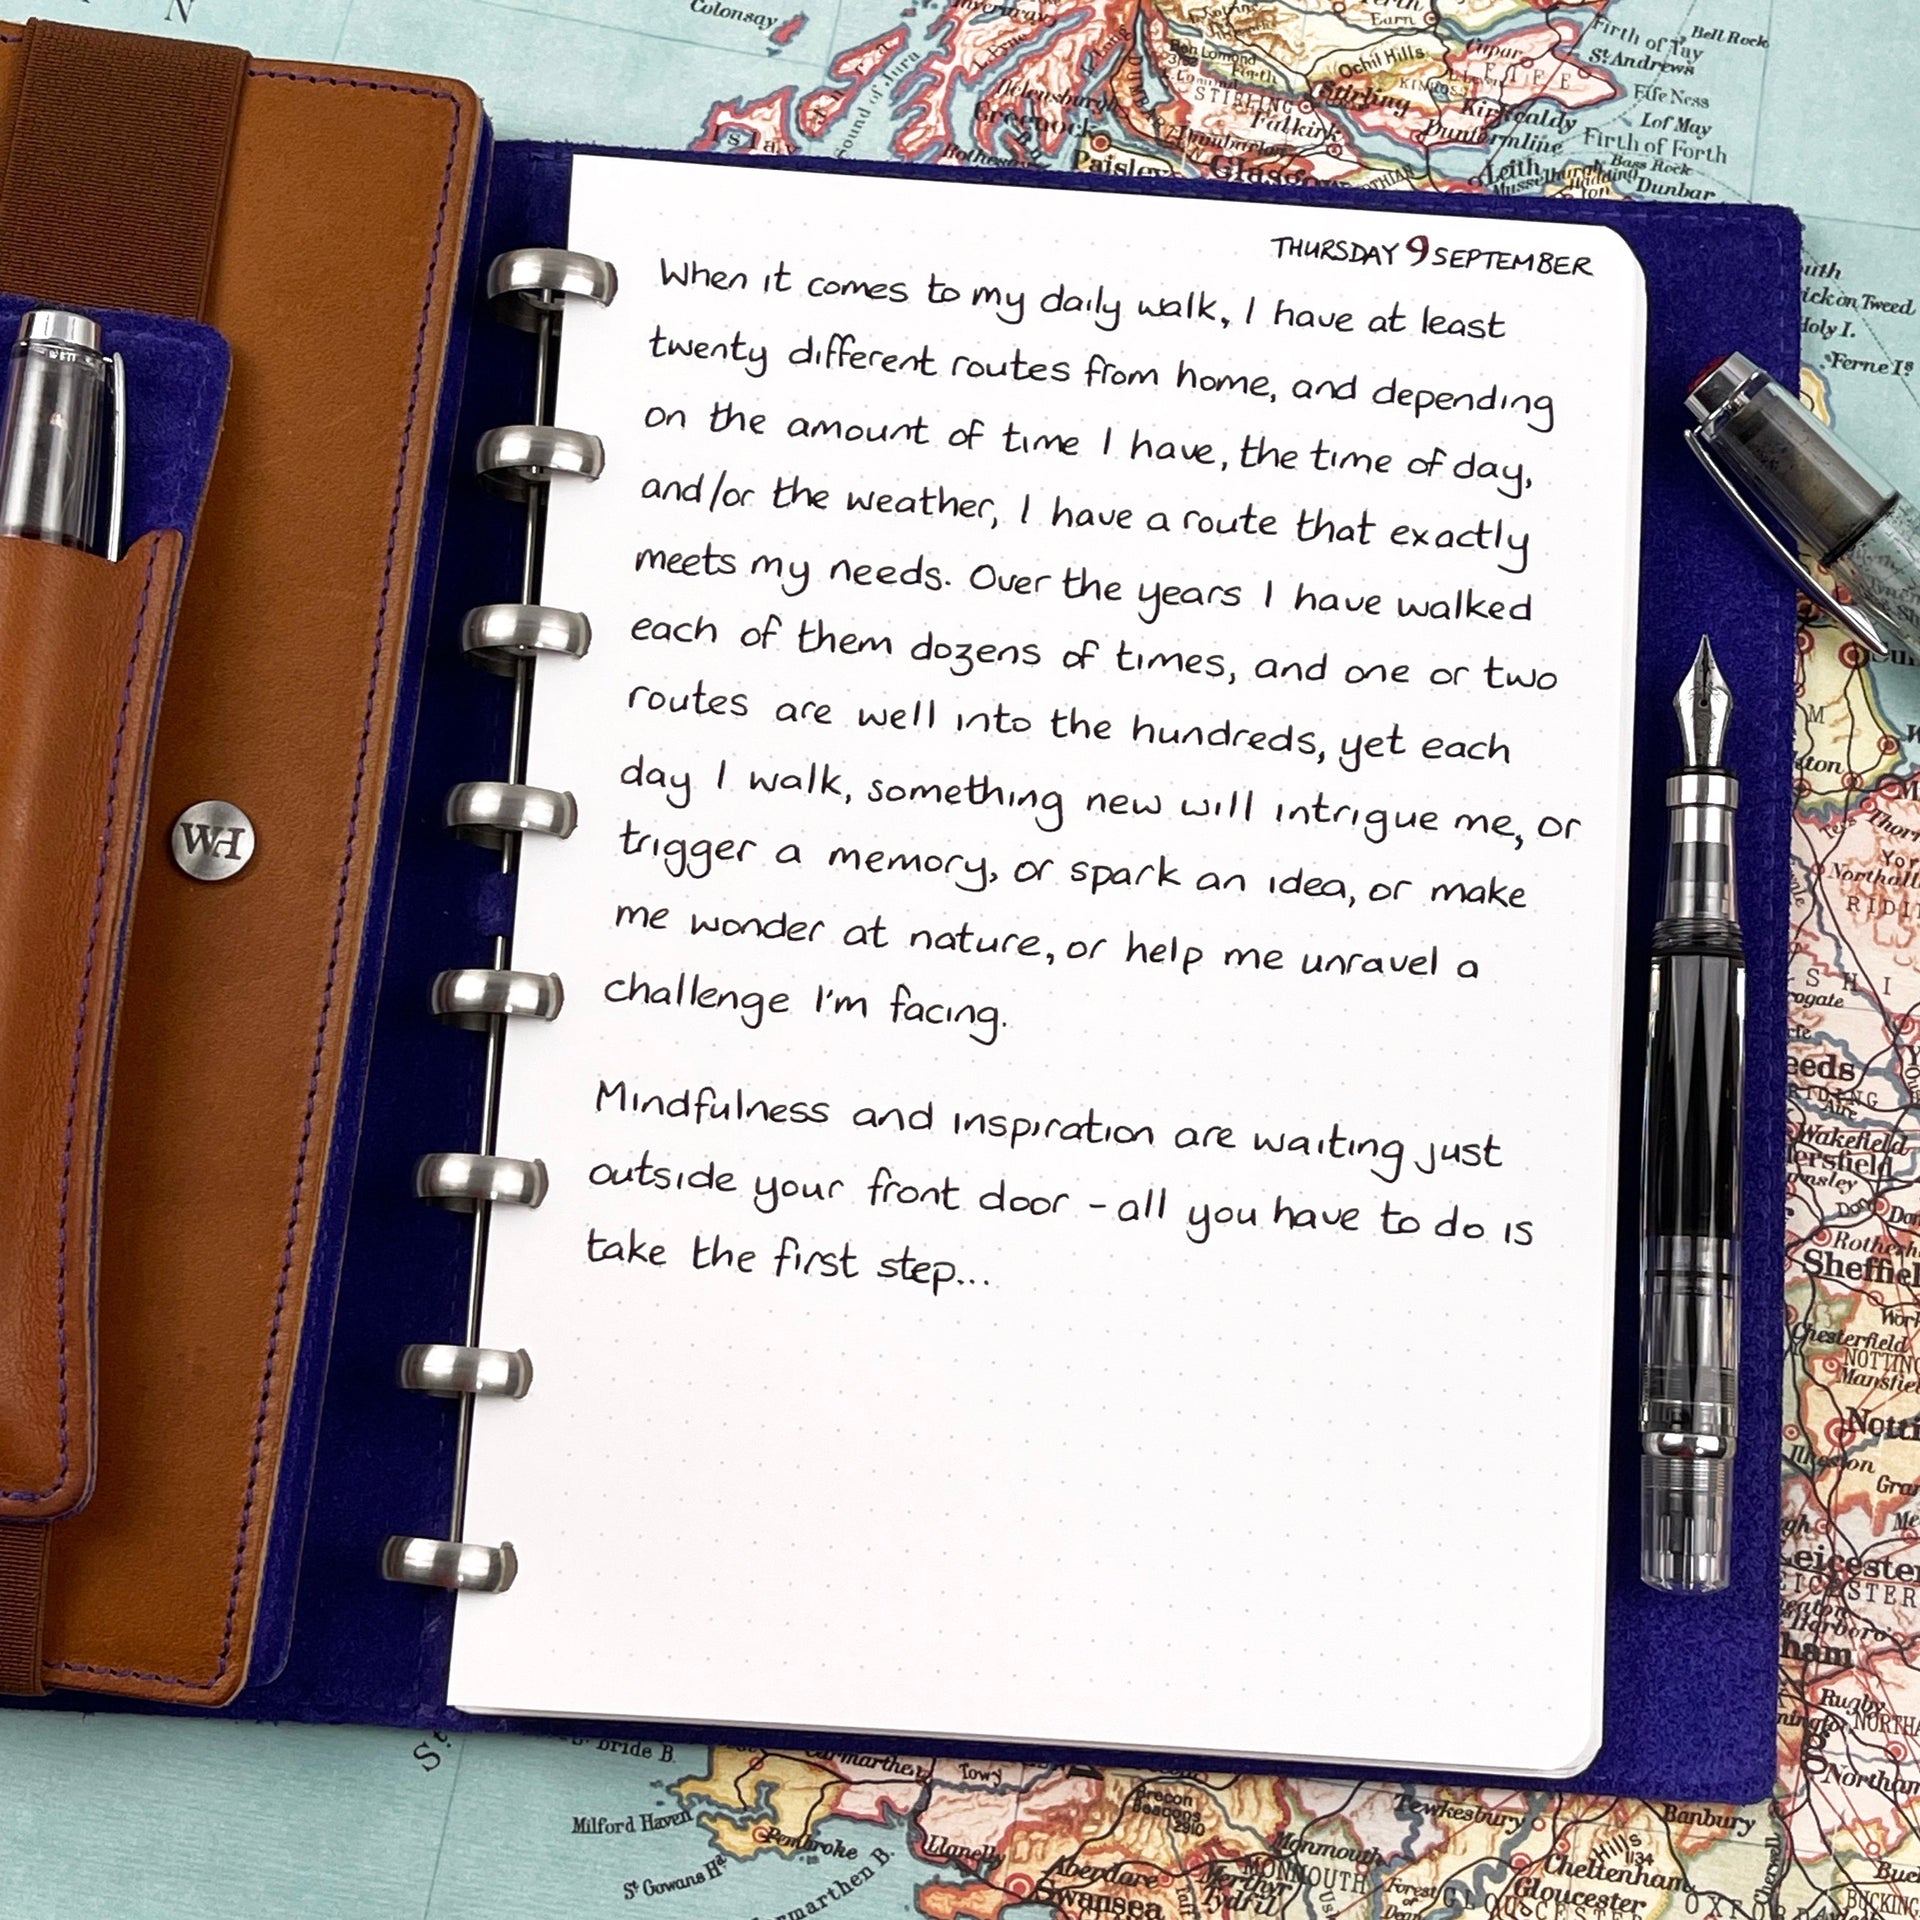 THURSDAY 9 SEPTEMBER
When it comes to my daily walk, I have at least
twenty different routes from home, and depending
on the amount of time I have, the time of day,
and/or the weather, I have a route that exactly
meets my needs. Over the years I have walked
each of them dozens of times, and one or two
routes are well into the hundreds, yet each
day I walk, something new will intrigue me, or
trigger a memory, or spark an idea, or make
me wonder at nature, or help me unravel a
challenge I'm facing.
Mindfulness and inspiration are waiting just
outside your front door - all you have to do is
take the first step...
WH
N
Colonsay
Sound of Jura
Islay
Greenock
Helensburgh
Paisley
Glasgow
Dumbarton
Ben Lomond
STIRLING
Stirling
Falkirk
Ochil Hills
KINROSS
Earn
Cupar
FIFE
Kirkcaldy
Dunfermline
Firth of Tay
Bell Rock
St Andrews
Fife Ness
I. of May
Firth of Forth
Bass Rock
Leith
Dunbar
Holy I.
Ferne Is
Northall
RIDI
Wakefield
Sheffiel
Chesterfield
NOTTING
Mansfie
Notti
Ilkeston
Gran
eicester
Rugby
NORTHA
Northam
Banbury
Tewkesbury
Cheltenham
Gloucester
Cherwell
BUCKING
Monmouth
MONMOUTH
Forest of Dean
Brecon Beacons
2910
Merthyr Tydfil
Aberdare
Swansea
Llanelly
Towy
Carmarthen
Pembroke
Milford Haven
St Gowans Hd
marthen B.
bride B.